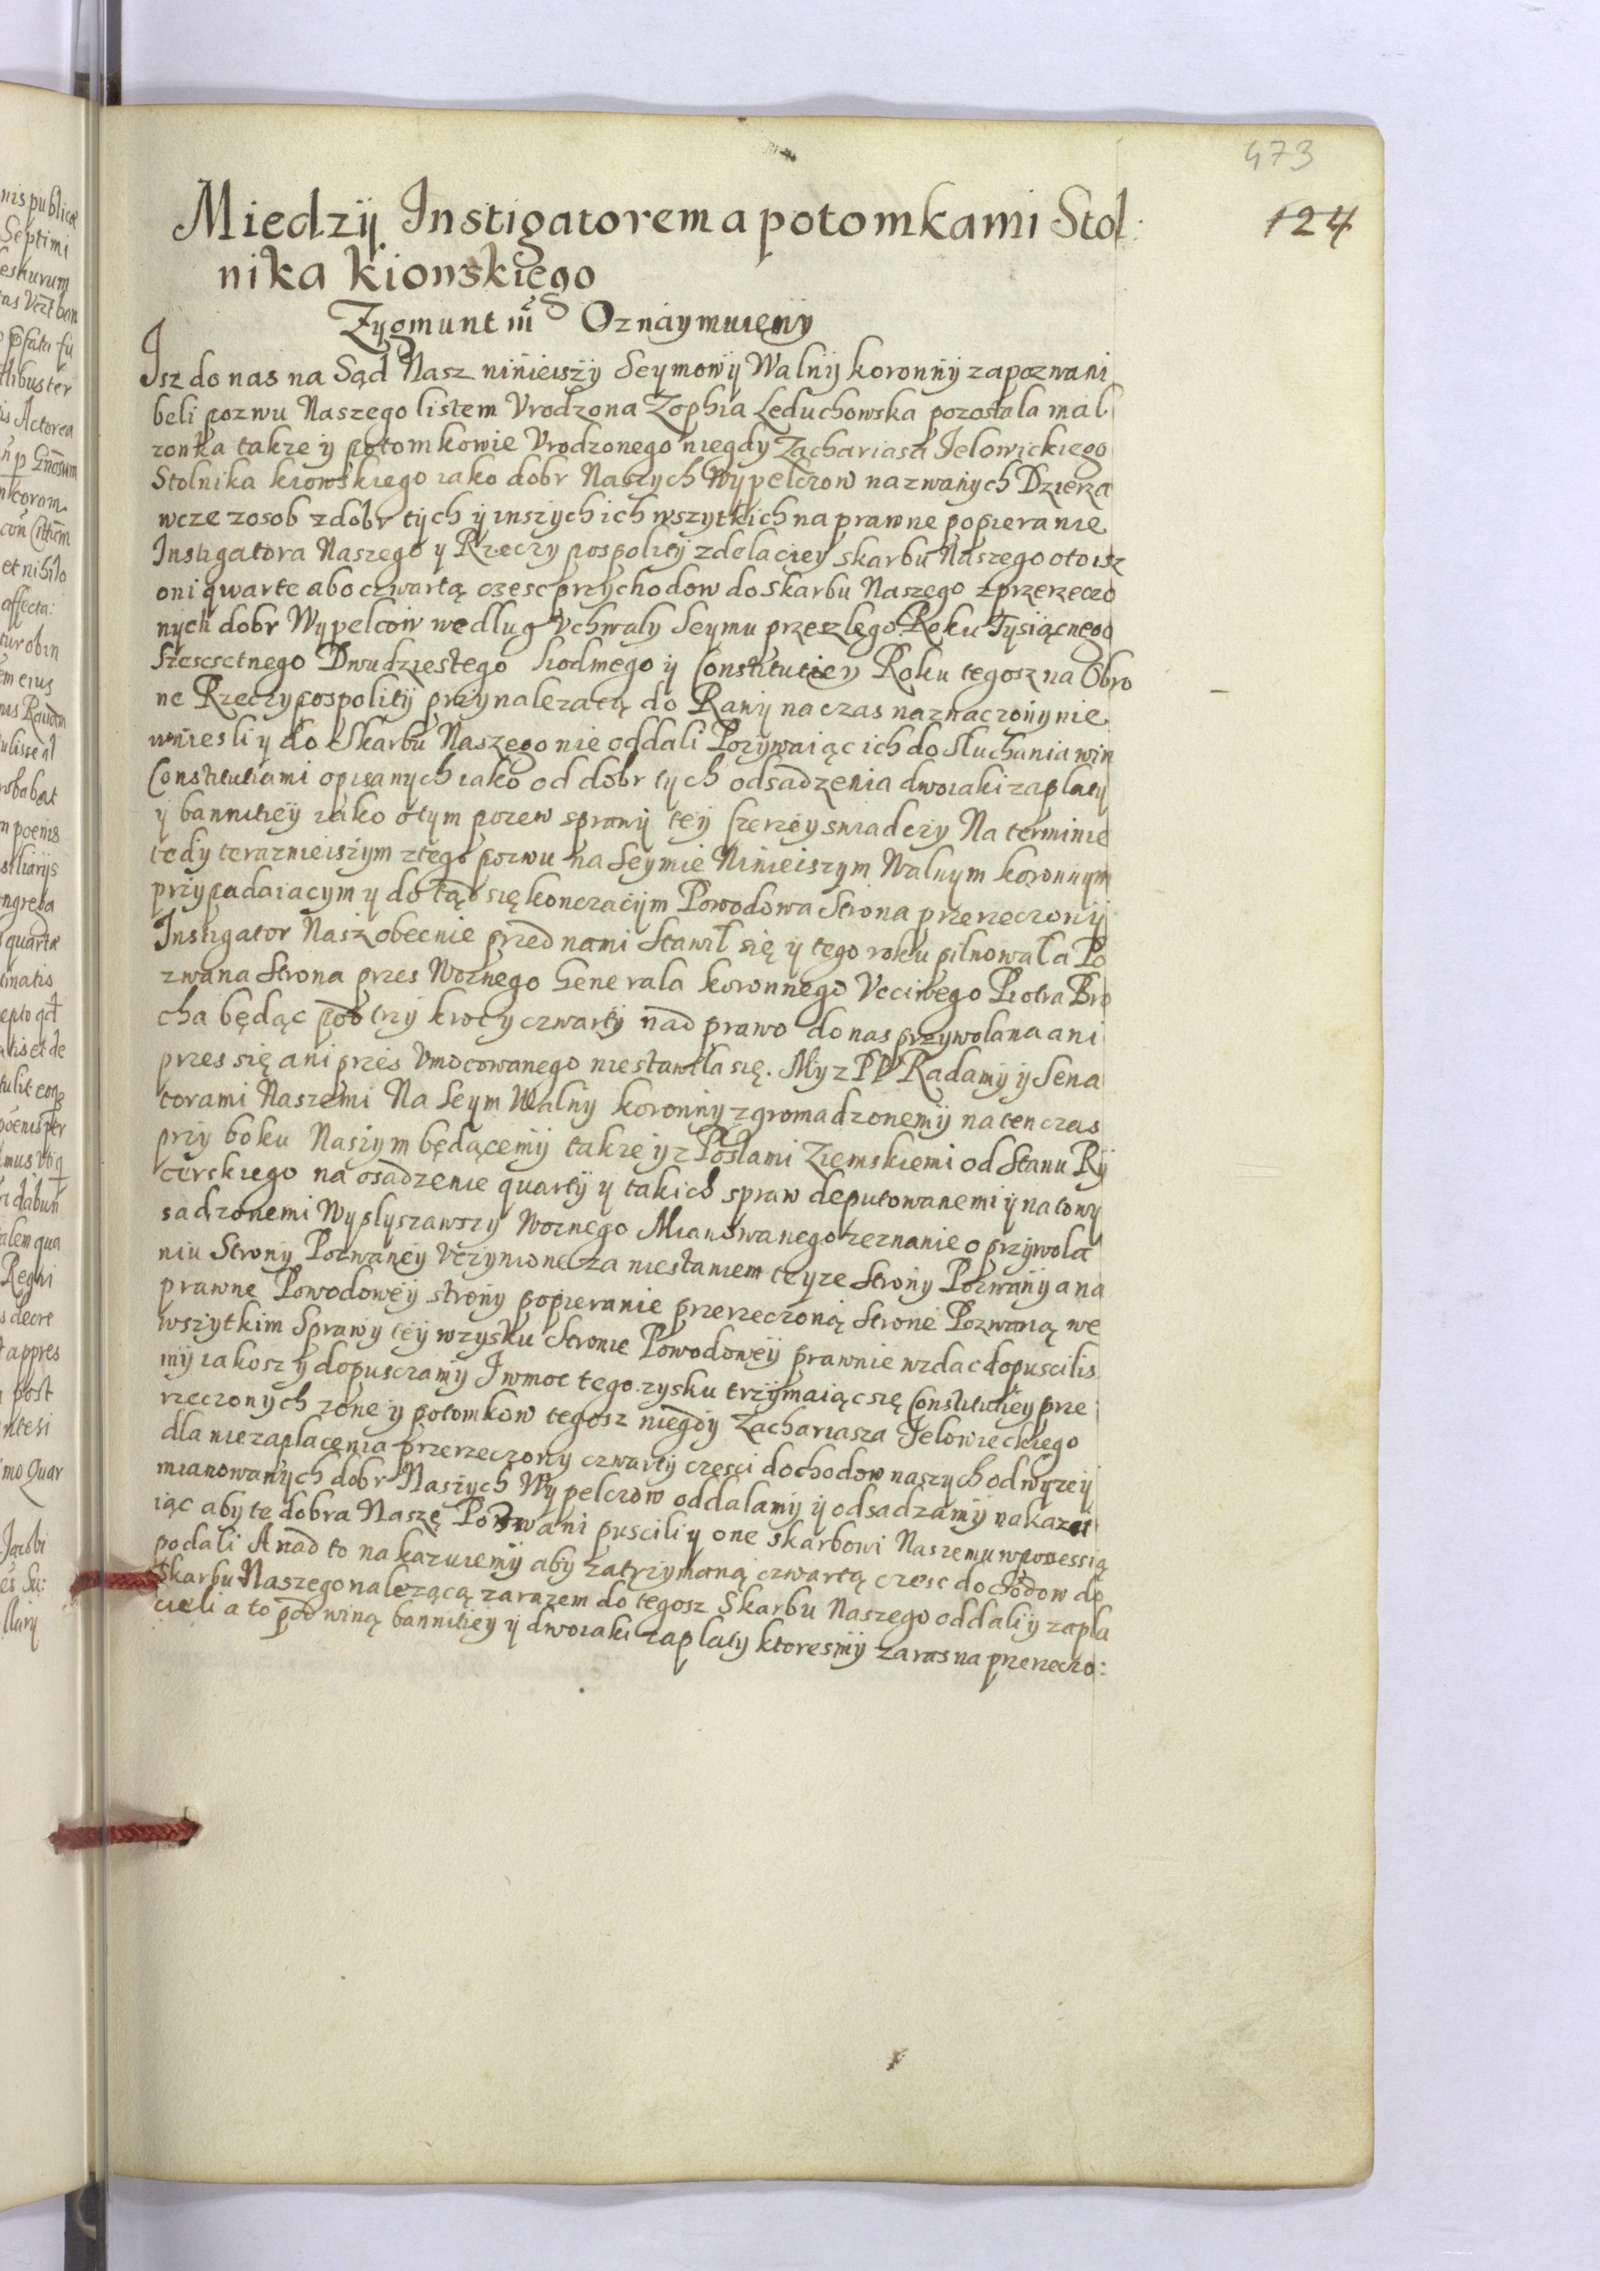 473
124
Miedzÿ Instigatorem a potomkami Stol:
nika Kiowskiego
Zygmunt iii Oznaymuięmÿ
Isz do nas na Sąd Nasz ninieiszÿ Seymowÿ Walnÿ koronnÿ zapozwani
beli pozwu Naszego listem Vrodzona Zophia Leduchowska pozostala mal
zonka takze ÿ potomkowie Vrodzonego niegdy Zachariasza Jelowickiego
Stolnika kiowskiego iako dobr Naszych Wypelczow nazwanych Dzierza
wcze zosob zdobr tych ÿ inszych ich wszytkich na prawne popieranie
Instigatora Naszego y Rzeczy pospolitÿ zdelaciey skarbu Naszego oto isz
oni qwarte abo czwartą czesc przychodow do skarbu Naszego z przerzeczo
nych dobr Wypelcow wedlug Vchwaly Seymu przeszlego Roku Tysiącnego
Szescsetnego Dwudziestego siodmego ÿ Constitutiey Roku tegosz na Obro
ne Rzeczypospolitÿ przynalezaczą do Rawÿ na czas naznaczonÿ nie
wniesli y do Skarbu Naszego nie oddali Pozywaiąc ich do sluchania win
Constitutiami opisanych iako od dobr tych odsadzenia dwoiaki zaplatÿ
ÿ bannitieÿ iako otym pozew sprawÿ teÿ szerzey swiadczy Na terminie
tedy teraznieiszym ztego pozwu na Seymie Ninieiszym Walnym koronnym
przypadaiacym y dotąd się konczacÿm Powodowa Strona przerzeczonÿ
Instigator Nasz obecnie przed nami Stawił się ÿ tego roku pilnował a Po
zwana Strona przes Woznego Generala koronnego Vcciwego Piotra Bro
cha będąc po trzy krocy czwartÿ nad prawo do nas przywolana ani
przes się ani przes Vmocowanego nie stawila się. My z PP Radamÿ ÿ Sena
torami Naszemi Na Seym Walny koronnÿ zgromadzonemÿ na ten czas
przy boku Naszym będącemÿ takze ÿ z Posłami Ziemskiemi od Stanu Rÿ
cerskiego na osadzenie quartÿ y takich spraw deputowanemi ÿ na to wy
sadzonemi Wyslyszawszy Woznego Mianowanego zeznanie o przywola
niu Stronÿ Pozwaneÿ Vczynione za niestaniem teyze Stronÿ Pozwanÿ a na
prawne Powodoweÿ stronÿ popieranie przerzeczoną Strone Pozwaną we
wszytkim Sprawy teÿ wzysku Stronie Powodoweÿ prawnie wzdac dopuscilis
mÿ iakosz ÿ dopusczamÿ I wmoc tego zysku trzÿmaiąc się Constitutieÿ prze
rzeczonych zone ÿ potomkow tegosz niegdy Zachariasza Jelowieckiego
dla niezaplacenia przerzeczony czwartÿ czesci dochodow naszych od wyzeÿ
mianowanÿch dobr Naszÿch Wypelczow oddalamÿ ÿ odsadzamÿ nakazu
iąc aby te dobra Nasze Pozwani puscili y one skarbowi Naszemu w possessią
podali A nad to nakazuiemÿ aby zatrzymaną czwartą czesc dochodow do
Skarbu Naszego nalezącą zarazem do tegosz Skarbu Naszego oddali y zapla
cieli a to pod winą bannitiey ÿ dwoiaki zaplaty ktoresmÿ zaras na przerzeczo: